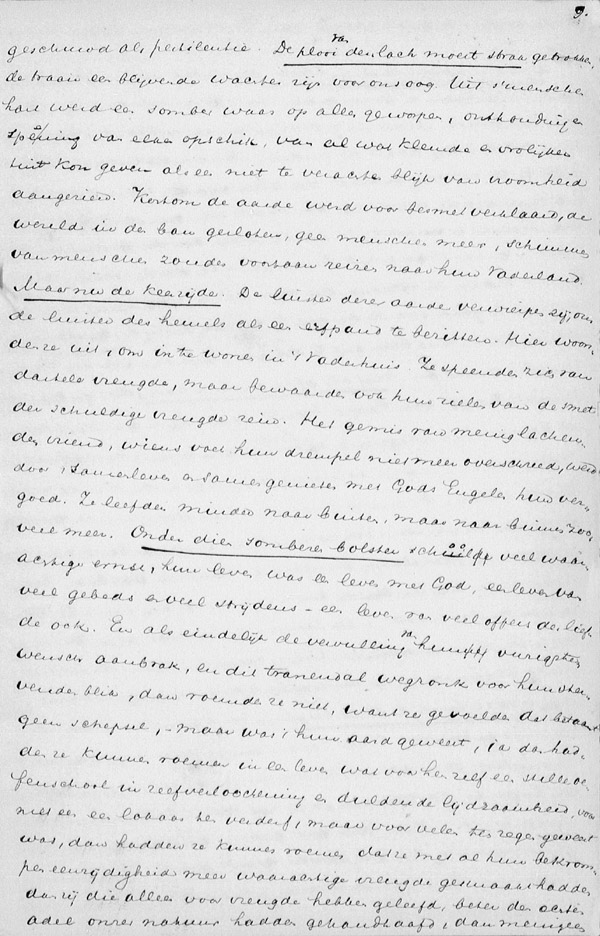 9.
geschuwd als pestilentie. De plooi van den lach moest straf getrokken,
de traan een blijvende wachter zijn voor ons oog. Uit 's menschen
hart werd een somber waas op alles geworpen, onthouding en
spening van elken opschik, van al wat kleurde en vrolijken
tint kon geven als een niet te verachten blijk van vroomheid
aangezien. Kortom de aarde werd voor besmet verklaard, de
wereld in den ban gesloten, geen menschen meer, schimmen
van menschen zouden voortaan reizen naar hun Vaderland.
Maar nu de keerzijde. De luister dezer aarde verwierpen zij, om
de luister des hemels als een erfpand te bezitten. Hier woon-
den ze uit, om in te wonen in 't Vaderhuis. Ze speenden zich van
dartele vreugde, maar bewaarden ook hun zielen van de smet
der schuldige vreugde rein. Het gemis van menig lachen-
den vriend, wiens voet hun drempel niet meer overschreed, werd
door 't samenleven en samengenieten met Gods Engelen hun ver-
goed. Ze leefden minder naar buiten, maar naar binnen zoo
veel meer. Onder dien somberen bolster school veel waar-
achtige ernst, hun leven was een leven met God, een leven van
veel gebeds en veel strijdens – een leven van veel offerende lief-
de ook. En als eindelijk de vervulling van hun vurigsten
wensch aanbrak, en dit tranendal wegzonk voor hun ster-
venden blik, dan roemden ze niet, want ze gevoelden dat betaamt
geen schepsel, – maar was 't hun aard geweest, ja dan had-
den ze kunnen roemen in een leven wat voor hen zelf een stille oe-
fenschool in zelfverloochening en duldende lijdzaamheid, voor
niet een een lokaas ten verderf, maar voor velen ten zegen geweest
was, dan hadden ze kunnen roemen dat ze met al hun bekrom-
pen eenzijdigheid meer waarachtige vreugde gesmaakt hadden
dan zij die alleen voor vreugde hebben geleefd, beter den echten
adel onzer natuur hadden gehandhaafd, dan menigeen